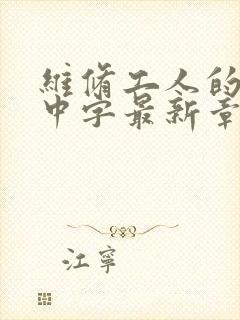 維脩工人的
中字最新章
江寧